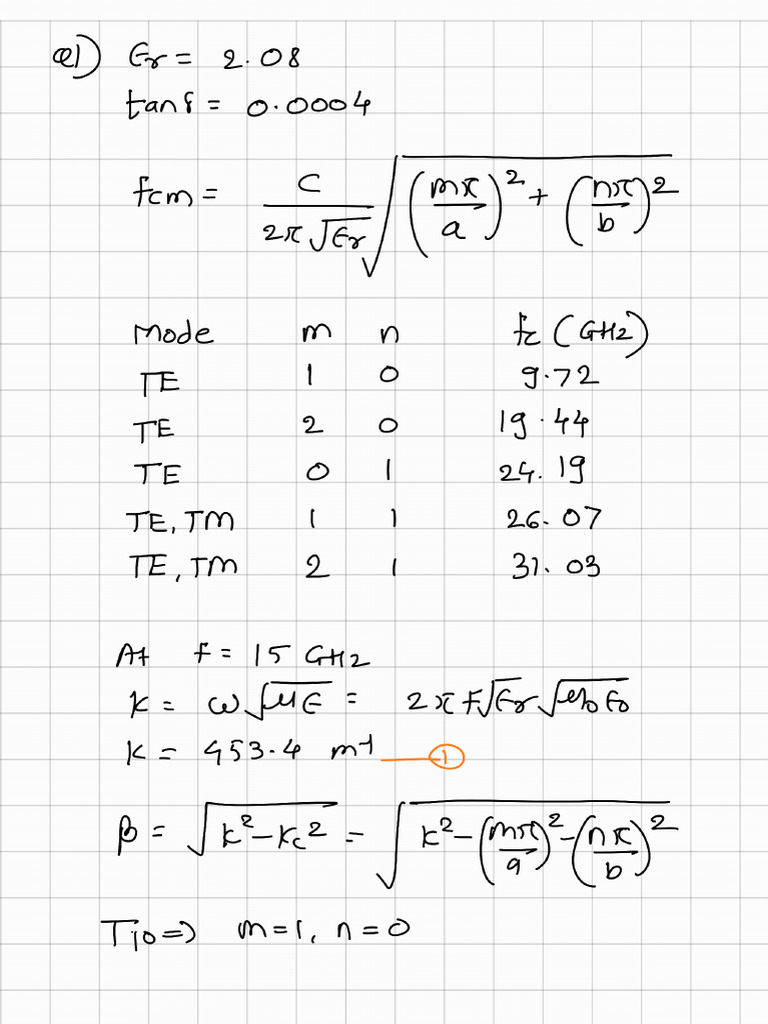 Q1) Єr = 2.08
tanδ = 0.0004
fcm = C / 2π√Єr √((mπ/a)² + (nπ/b)²)
Mode m n fc (GHz)
TE 1 0 9.72
TE 2 0 19.44
TE 0 1 24.19
TE, TM 1 1 26.07
TE, TM 2 1 31.03
At f = 15 GHz
K = ω√μЄ = 2πf√Єr √μ0Є0
K = 453.4 m⁻¹ — ①
β = √(k² − Kc²) = √(k² − (mπ/a)² − (nπ/b)²)
T10 ⇒ m=1, n=0